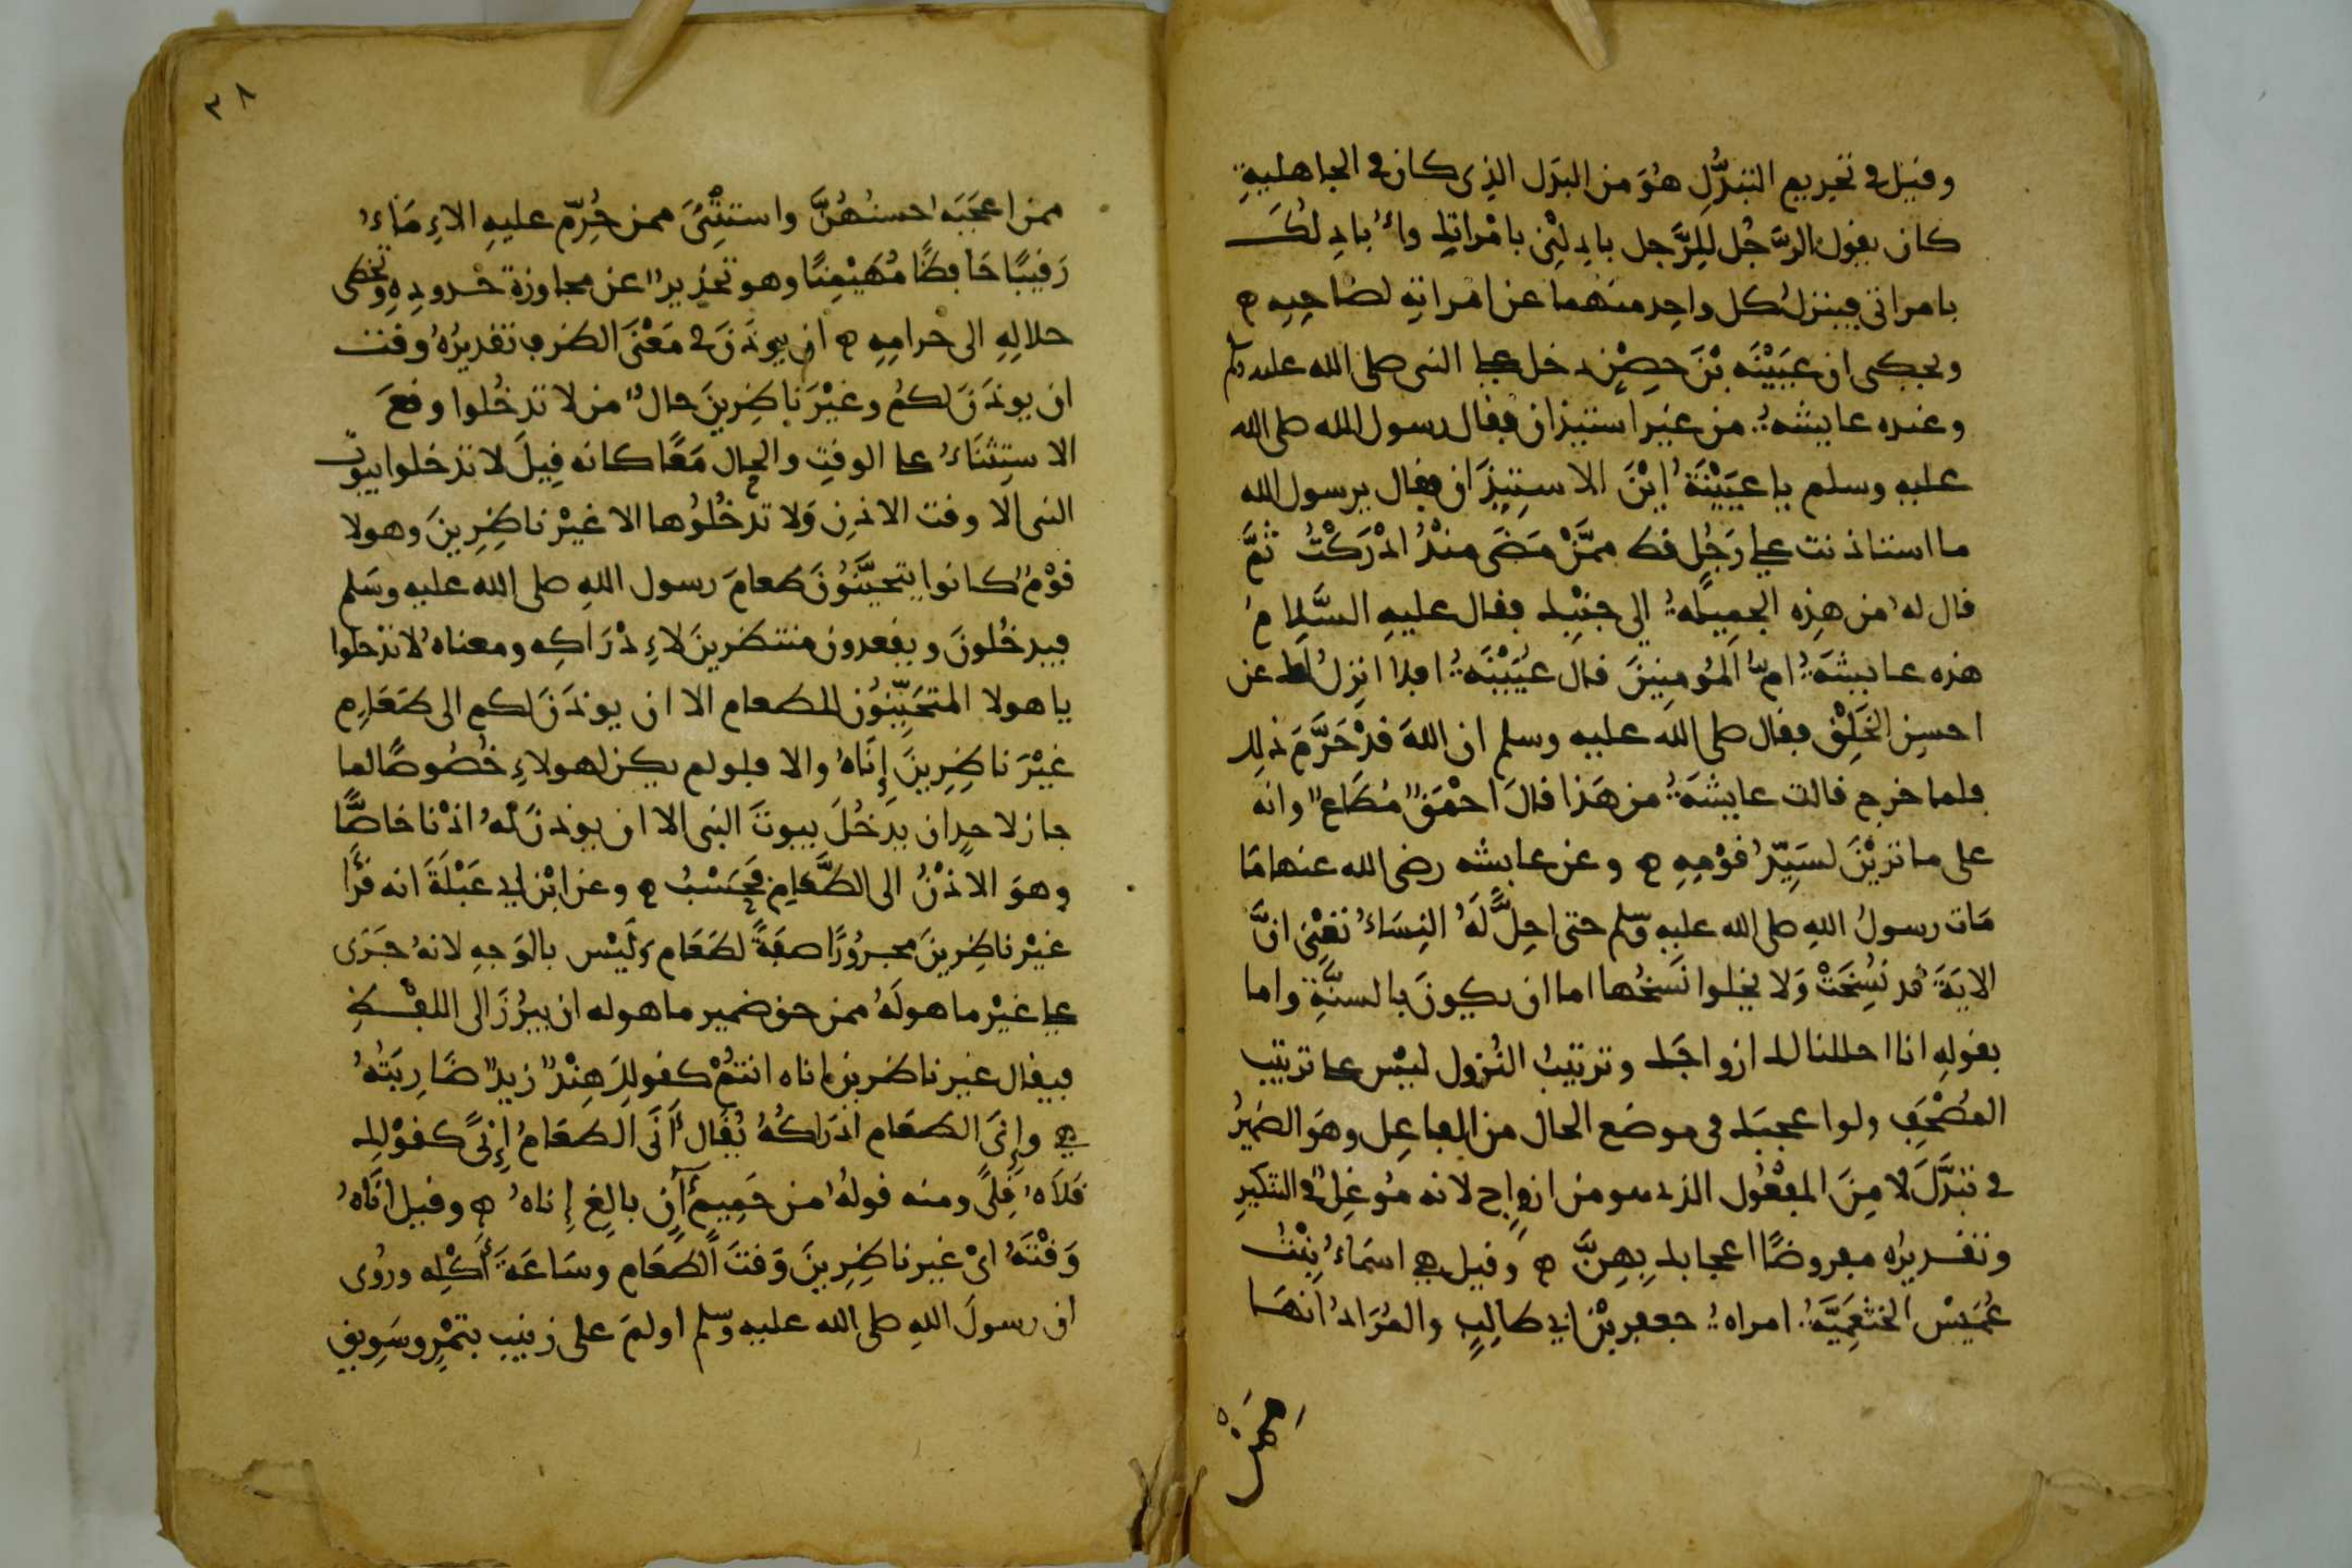 وقيل في تحريم التبدُّل هُوَ من البدَل الذِي كان في الجاهليةِ
كان يقول الرَّجُل للرَّجل بادِلْنِي بامْراتك واُبادِلُكَ
بامراتي فينزل كل واحِد منهما عن امْراتِهِ لصَاحِبِهِ ه
ويحكى ان عيَيْنَه بْنَ حِصْنٍ دخل على النبي صلى الله عليه وسلم
وعنده عايشهُ من غير استيذان فقال رسول الله صلى الله
عليه وسلم يا عيَيْنَةُ ايْنَ الاستِيذَان فقال يرسول الله
ما استاذنت على رَجُل قط ممَّنْ مَضَى منْذُ ادْرَكْتُ ثمَّ
قال له من هذِه الجمِيلَهُ الى جنْبِك فقال عليهِ السَّلامُ
هذه عايشَةُ امُّ المُومِنِينَ قال عُيَيْنَةُ افلا انزِلُ لك عن
احسن الخَلْق فقال صلى الله عليه وسلم ان اللهَ قدْ حَرَّمَ ذلِك
فلما خرج قالت عايشَةُ من هَذا قالَ احْمَقٌ مُطَاعٌ وانه
على ما تَرَيْنَ لسَيِّدُ قَوْمِهِ ه وعن عايشه رضي الله عنها مَا
مَات رسولُ اللهِ صلى الله عليه وسلم حتى احِلَّ لَهُ النِسَاءُ تَعْنِي انَّ
الايَةَ قد نُسِخَتْ وَلا يخلوا نَسْخُها اما ان يكونَ بالسنَّةِ واما
بقولهِ انا احللنا لك ازواجَك وترتيبُ النُزول ليْس على ترتيب
المُصْحَفِ ولو اعجبَك في موضع الحال من الفاعِل وهوَ الضميرُ
في تبَدَّلَ لا مِنَ المفْعُول الذي هو من ازواج لانه مُوغِلٌ في التنكيرِ
وتقديرُه مفروضًا اعجابك بِهِنَّ ه وقيل هي اسمَاءُ بِنْتُ
عُمَيْس الخثعَمِيَّةُ امراةُ جعفر بْن ابي طالِبٍ والمُرَادُ انهَا
ممن
ممن اعجَبَه احسنُهُنَّ واستثْنَى ممن حُرِّم عليهِ الاِمَاءُ
رَقيبًا حَافظًا مُهَيْمِنًا وهو تحْذيرٌ عن مجاوزة حُدودِهِ وتخطى
حلالِهِ الى حرامِهِ ه ان يوذَنَ في مَعْنَى الظرفِ تقديرُهُ وقتَ
ان يوذَنَ لكمُ وغيْرَ ناظِرِينَ حالٌ من لا تدخُلوا وقعَ
الاستِثنَاءُ على الوقتِ والحال مَعًا كانه قِيلَ لا تدخلوا بيوتَ
النبي الا وقت الاذنِ وَلا تدْخُلُوها الا غيْر ناظِرِينَ وهولا
قوْمٌ كانوا يتحيَّنُونَ طعامَ رسول اللهِ صلى الله عليه وسَلم
فيدخُلونَ ويقعدون منتظرينَ لاِدْرَاكِه ومعناهُ لا تدخلوا
يا هولا المتحَيِّنُون للطعام الا ان يوذَنَ لكم الى طَعَامٍ
غيْرَ ناظِرِينَ إِنَاهُ والا فلو لم يكن لهولاءِ خُصُوصًا لما
جاز لاحدٍ ان يدخُلَ بيوتَ النبي الا ان يوذنَ لهُ اذْنا خاصًّا
وهوَ الاِذْنُ الى الطَّعَامِ فحَسْبُ ه وعن ابْن ابي عَبْلَةَ انه قرَأ
غيْر ناظِرِينَ مجرُورًا صفةً لطَعَام وَليْس بالوَجهِ لانهُ جَرَى
على غيْر ما هولَهُ فمن حق ضمير ما هوله ان يبرُزَ الى اللفْظِ
فيقال غير ناظرين اناه انتُمْ كقولِكَ هِنْدٌ زيدٌ ضَارِبَتُهُ
هي وإنَى الطعَام ادْرَاكُهُ يُقَال أنَى الطعَامُ إِنًى كقوْلِك
قَلَاهُ قِلًى ومنه قولهُ من حَمِيمٍ آنٍ بالِغ إناهُ ه وقيل انَاهُ
وَقْتَهُ ايْ غير ناظِرِينَ وَقتَ الطعَام وسَاعَةَ أكْلِه ورُوى
ان رسولَ اللهِ صلى الله عليه وسلم اولمَ على زينب بتمْرٍ وسَوِيقٍ
٣٨